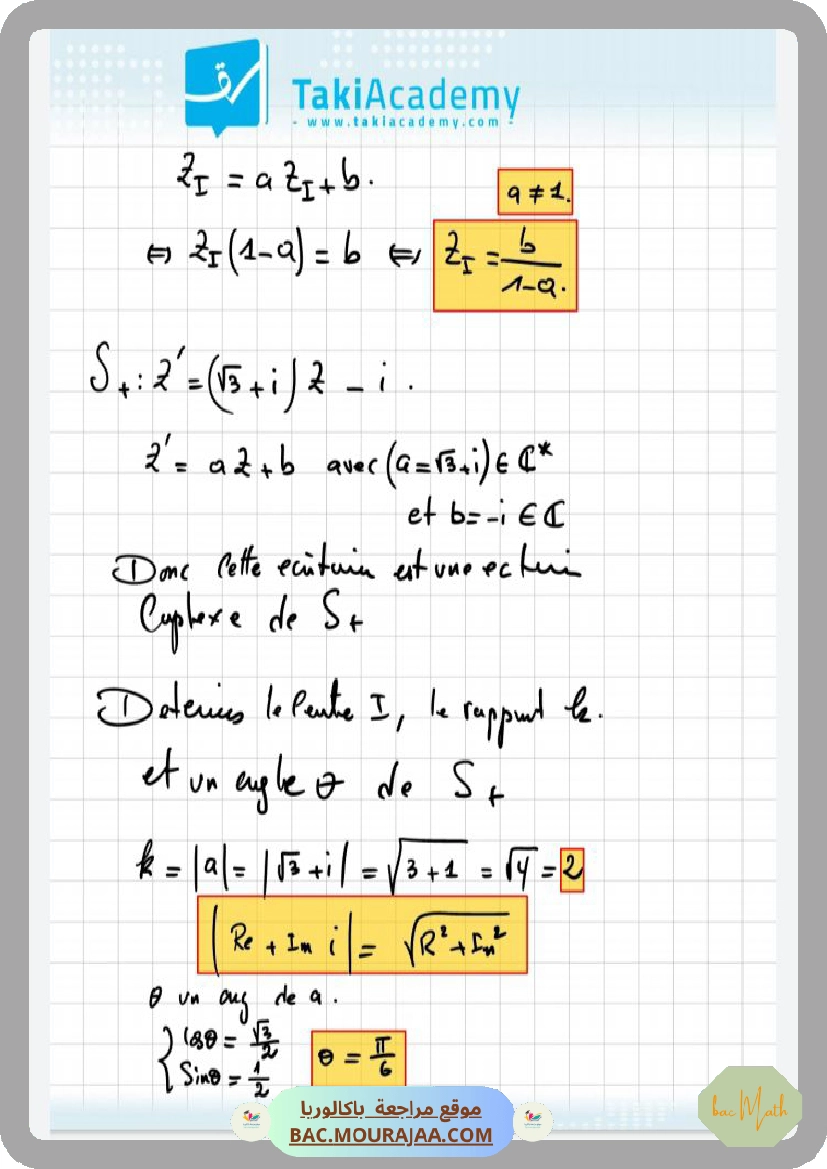 TakiAcademy
- www.takiacademy.com -
Z_I = a Z_I + b.
a ≠ 1.
⇔ Z_I (1-a) = b ⇔ Z_I = b/(1-a).
S+ : Z' = (√3 + i) Z - i .
Z' = aZ + b avec (a = √3+i) ∈ ℂ*
et b = -i ∈ ℂ
Donc cette est une
de S+
le I, le rapport k.
et un angle θ de S+
k = |a| = |√3 + i| = √(3+1) = √4 = 2
|Re + Im i| = √(R² + Im²)
θ un arg de a .
{ cosθ = √3/2
sinθ = 1/2
θ = π/6
موقع مراجعة باكالوريا
BAC.MOURAJAA.COM
bac Math